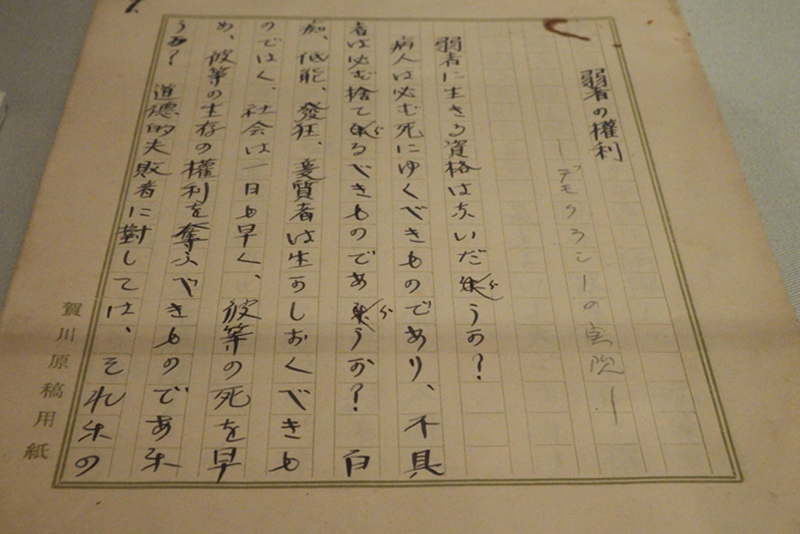 弱者の權利
―デモクラシーの
弱者に生きる資格はないだらうか?
病人は必ず死にゆくべきものであり、不具
者は必ず捨てらるべきものであらうか? 白
痴、低能、發狂、変質者は生かしおくべきも
のではく、社会は一日も早く、彼等の死を早
め、彼等の生存の權利を奪ふべきものであら
うか? 道德的失敗者に對しては、それらの
賀川原稿用紙